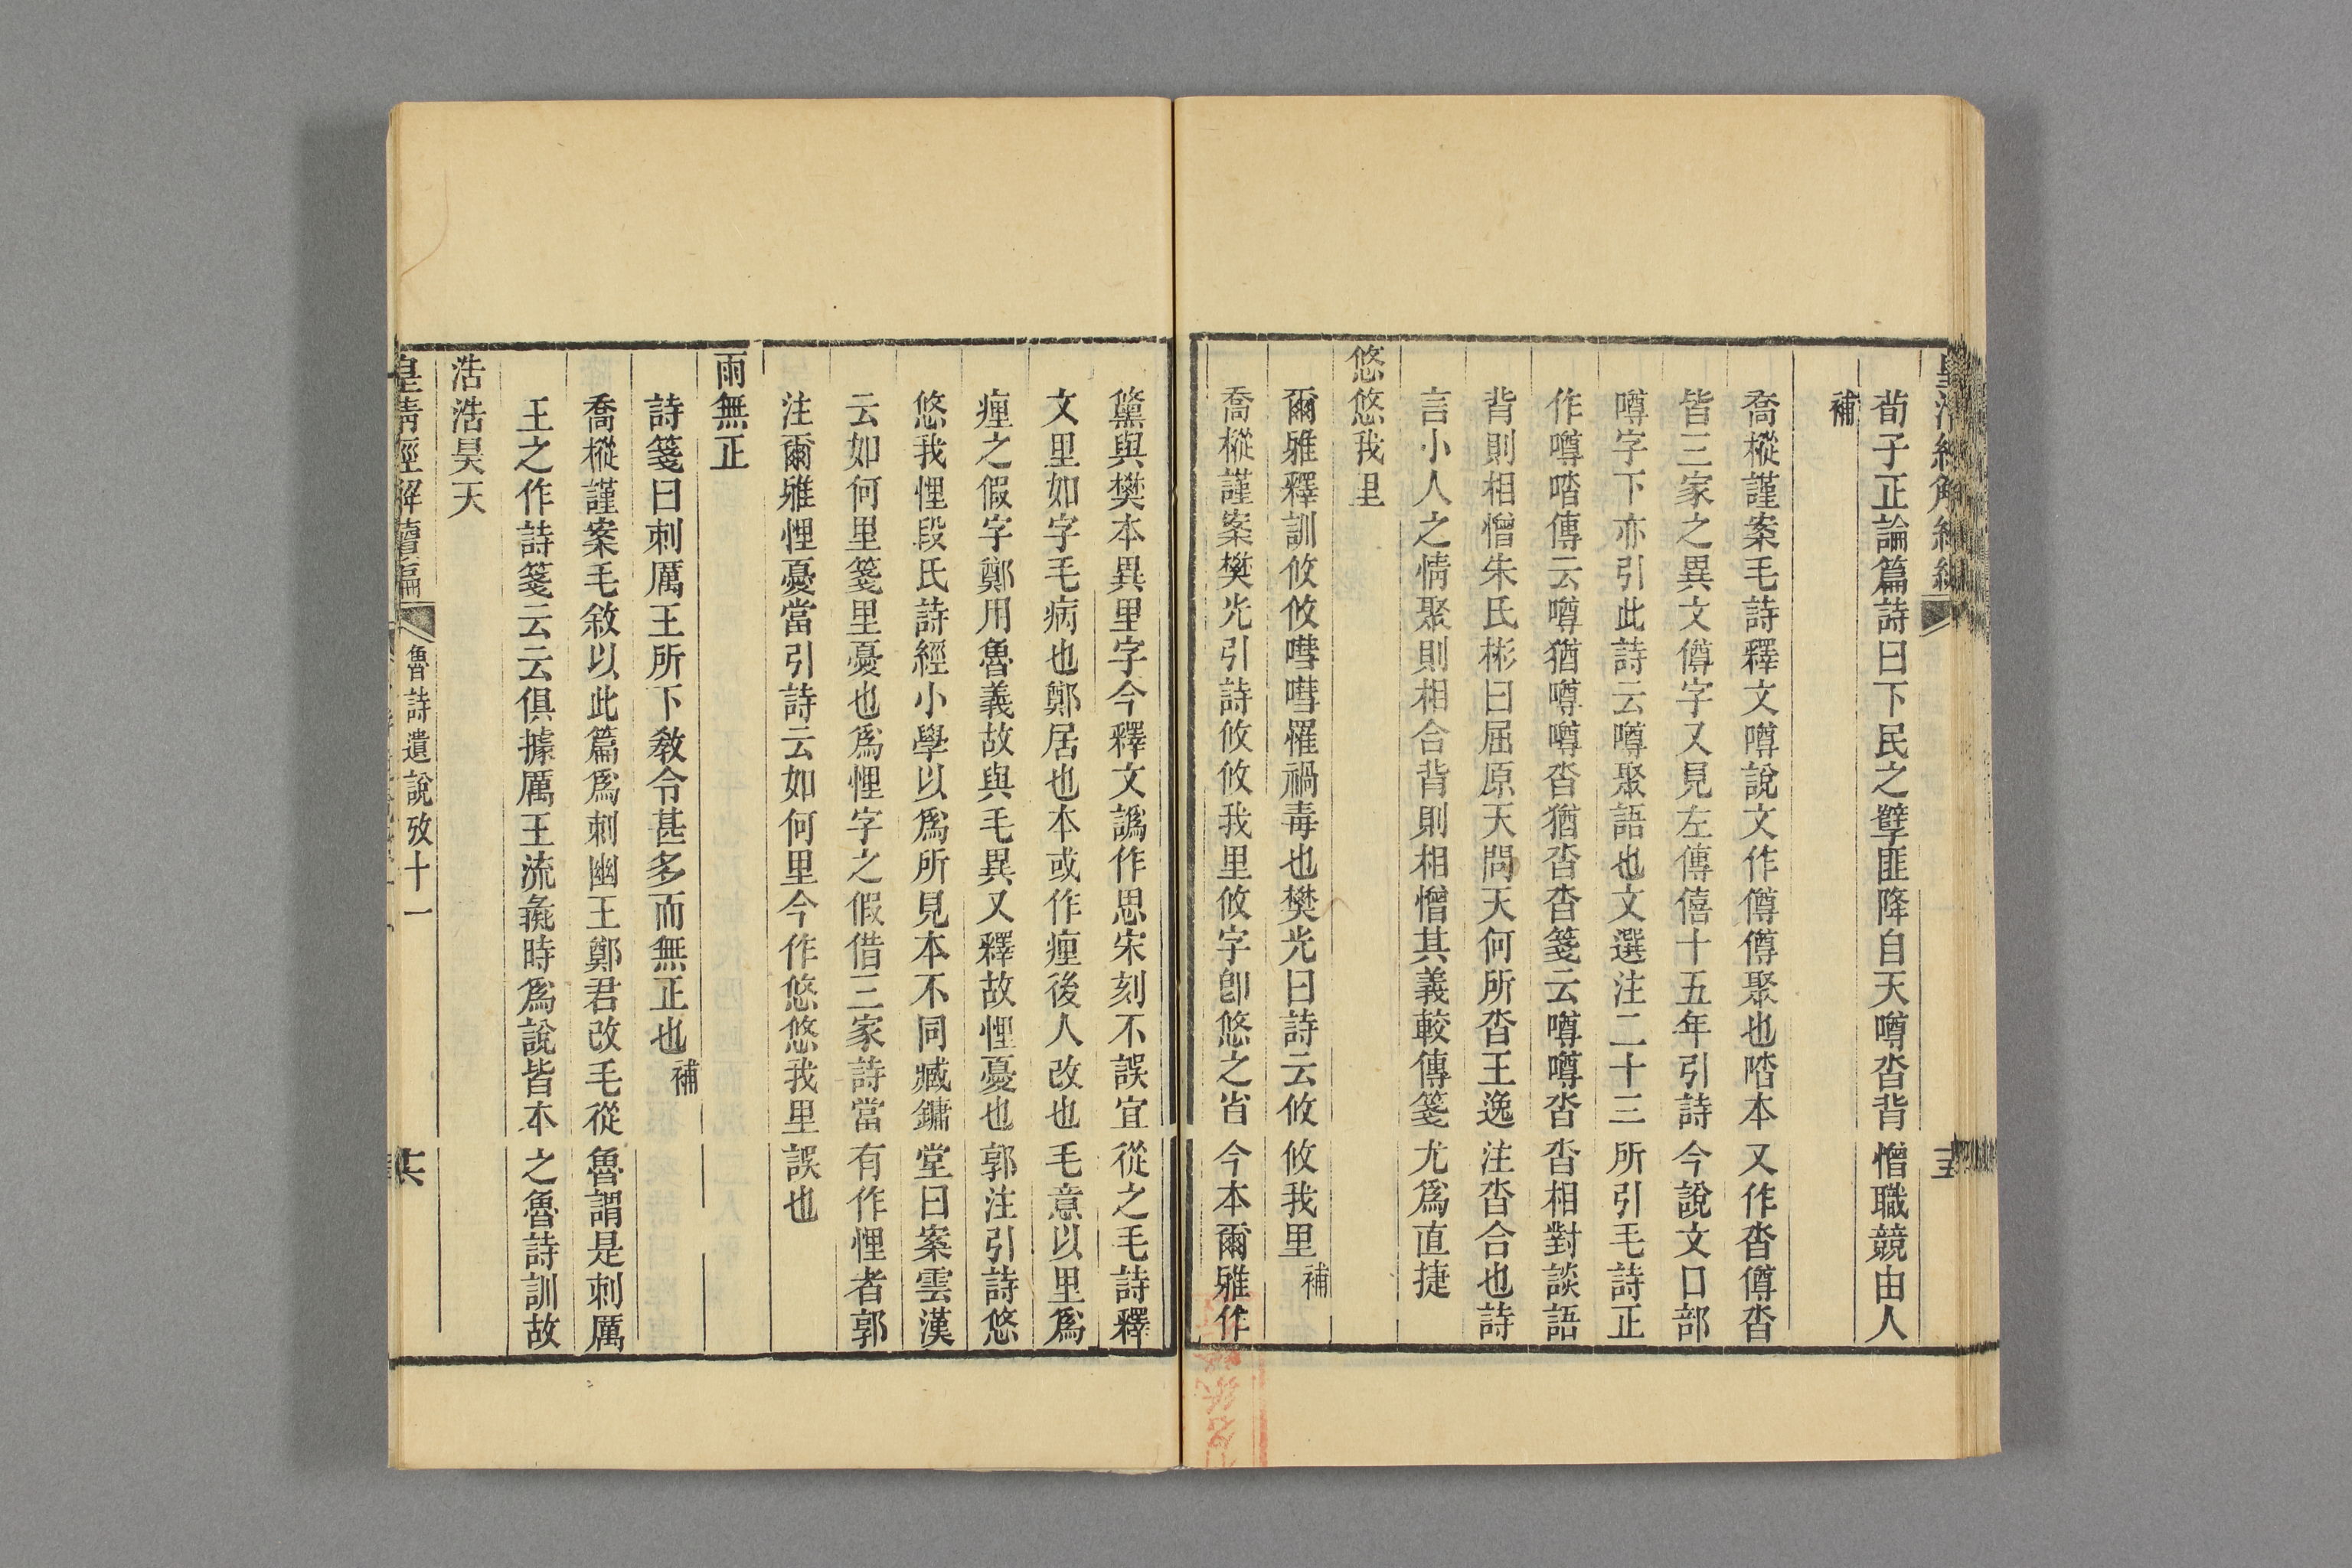 荀子正論篇詩曰下民之孼匪降自天噂沓背憎職競由人
補
喬樅謹案毛詩釋文噂說文作僔僔聚也㗳本又作沓僔沓
皆三家之異文僔字又見左傳僖十五年引詩今說文口部
噂字下亦引此詩云噂聚語也文選注二十三所引毛詩正
作噂㗳傳云噂猶噂噂沓猶沓沓箋云噂噂沓沓相對談語
背則相憎朱氏彬曰屈原天問天何所沓王逸注沓合也詩
言小人之情聚則相合背則相憎其義較傳箋尤爲直捷
悠悠我里
爾雅釋訓攸攸嘒嘒罹禍毒也樊光曰詩云攸攸我里補
喬樅謹案樊光引詩攸攸我里攸字卽悠之省今本爾雅作
黨與樊本異里字今釋文譌作思宋刻不誤宜從之毛詩釋
文里如字毛病也鄭居也本或作㾖後人改也毛意以里爲
㾖之假字鄭用魯義故與毛異又釋故悝憂也郭注引詩悠
悠我悝段氏詩經小學以爲所見本不同臧鏞堂曰案雲漢
云如何里箋里憂也爲悝字之假借三家詩當有作悝者郭
注爾雅悝憂當引詩云如何里今作悠悠我里誤也
雨無正
詩箋曰刺厲王所下敎令甚多而無正也補
喬樅謹案毛敘以此篇爲刺幽王鄭君改毛從魯謂是刺厲
王之作詩箋云云俱據厲王流彘時爲說皆本之魯詩訓故
浩浩昊天
皇清經解續編 魯詩遺說攷十一 共